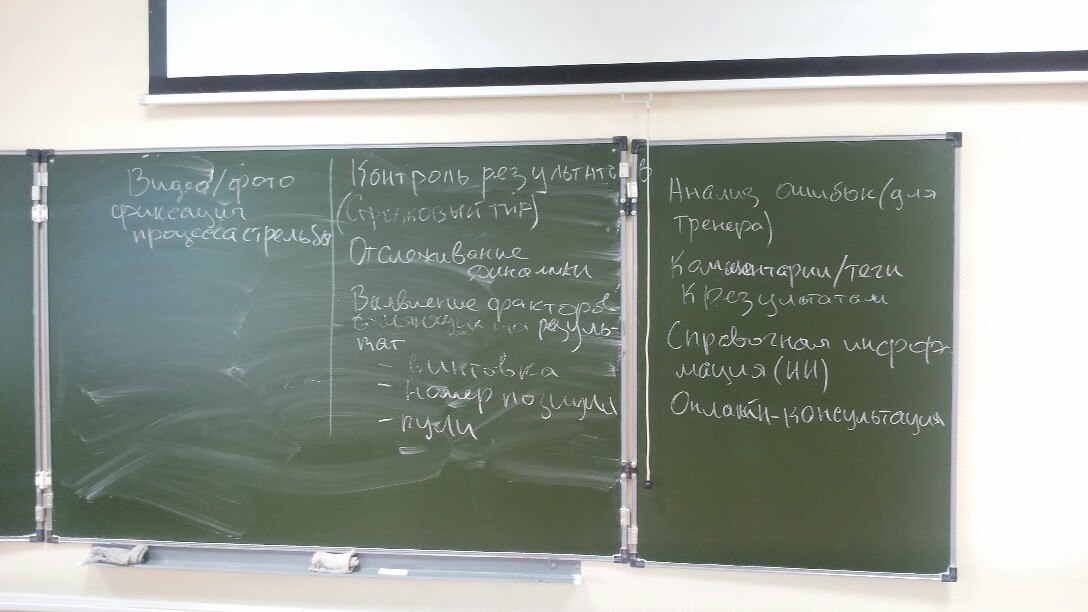 Видео/фото
фиксация
процесса стрельбы
Контроль результатов
(Стрелковый тир)
Отслеживание
динамики
Выявление факторов
влияющих на резуль-
тат
- винтовка
- номер позиции
- пули
Анализ ошибок (для
тренера)
Комментарии/теги
к результатам
Справочная инфор-
мация (ИИ)
Онлайн-консультация